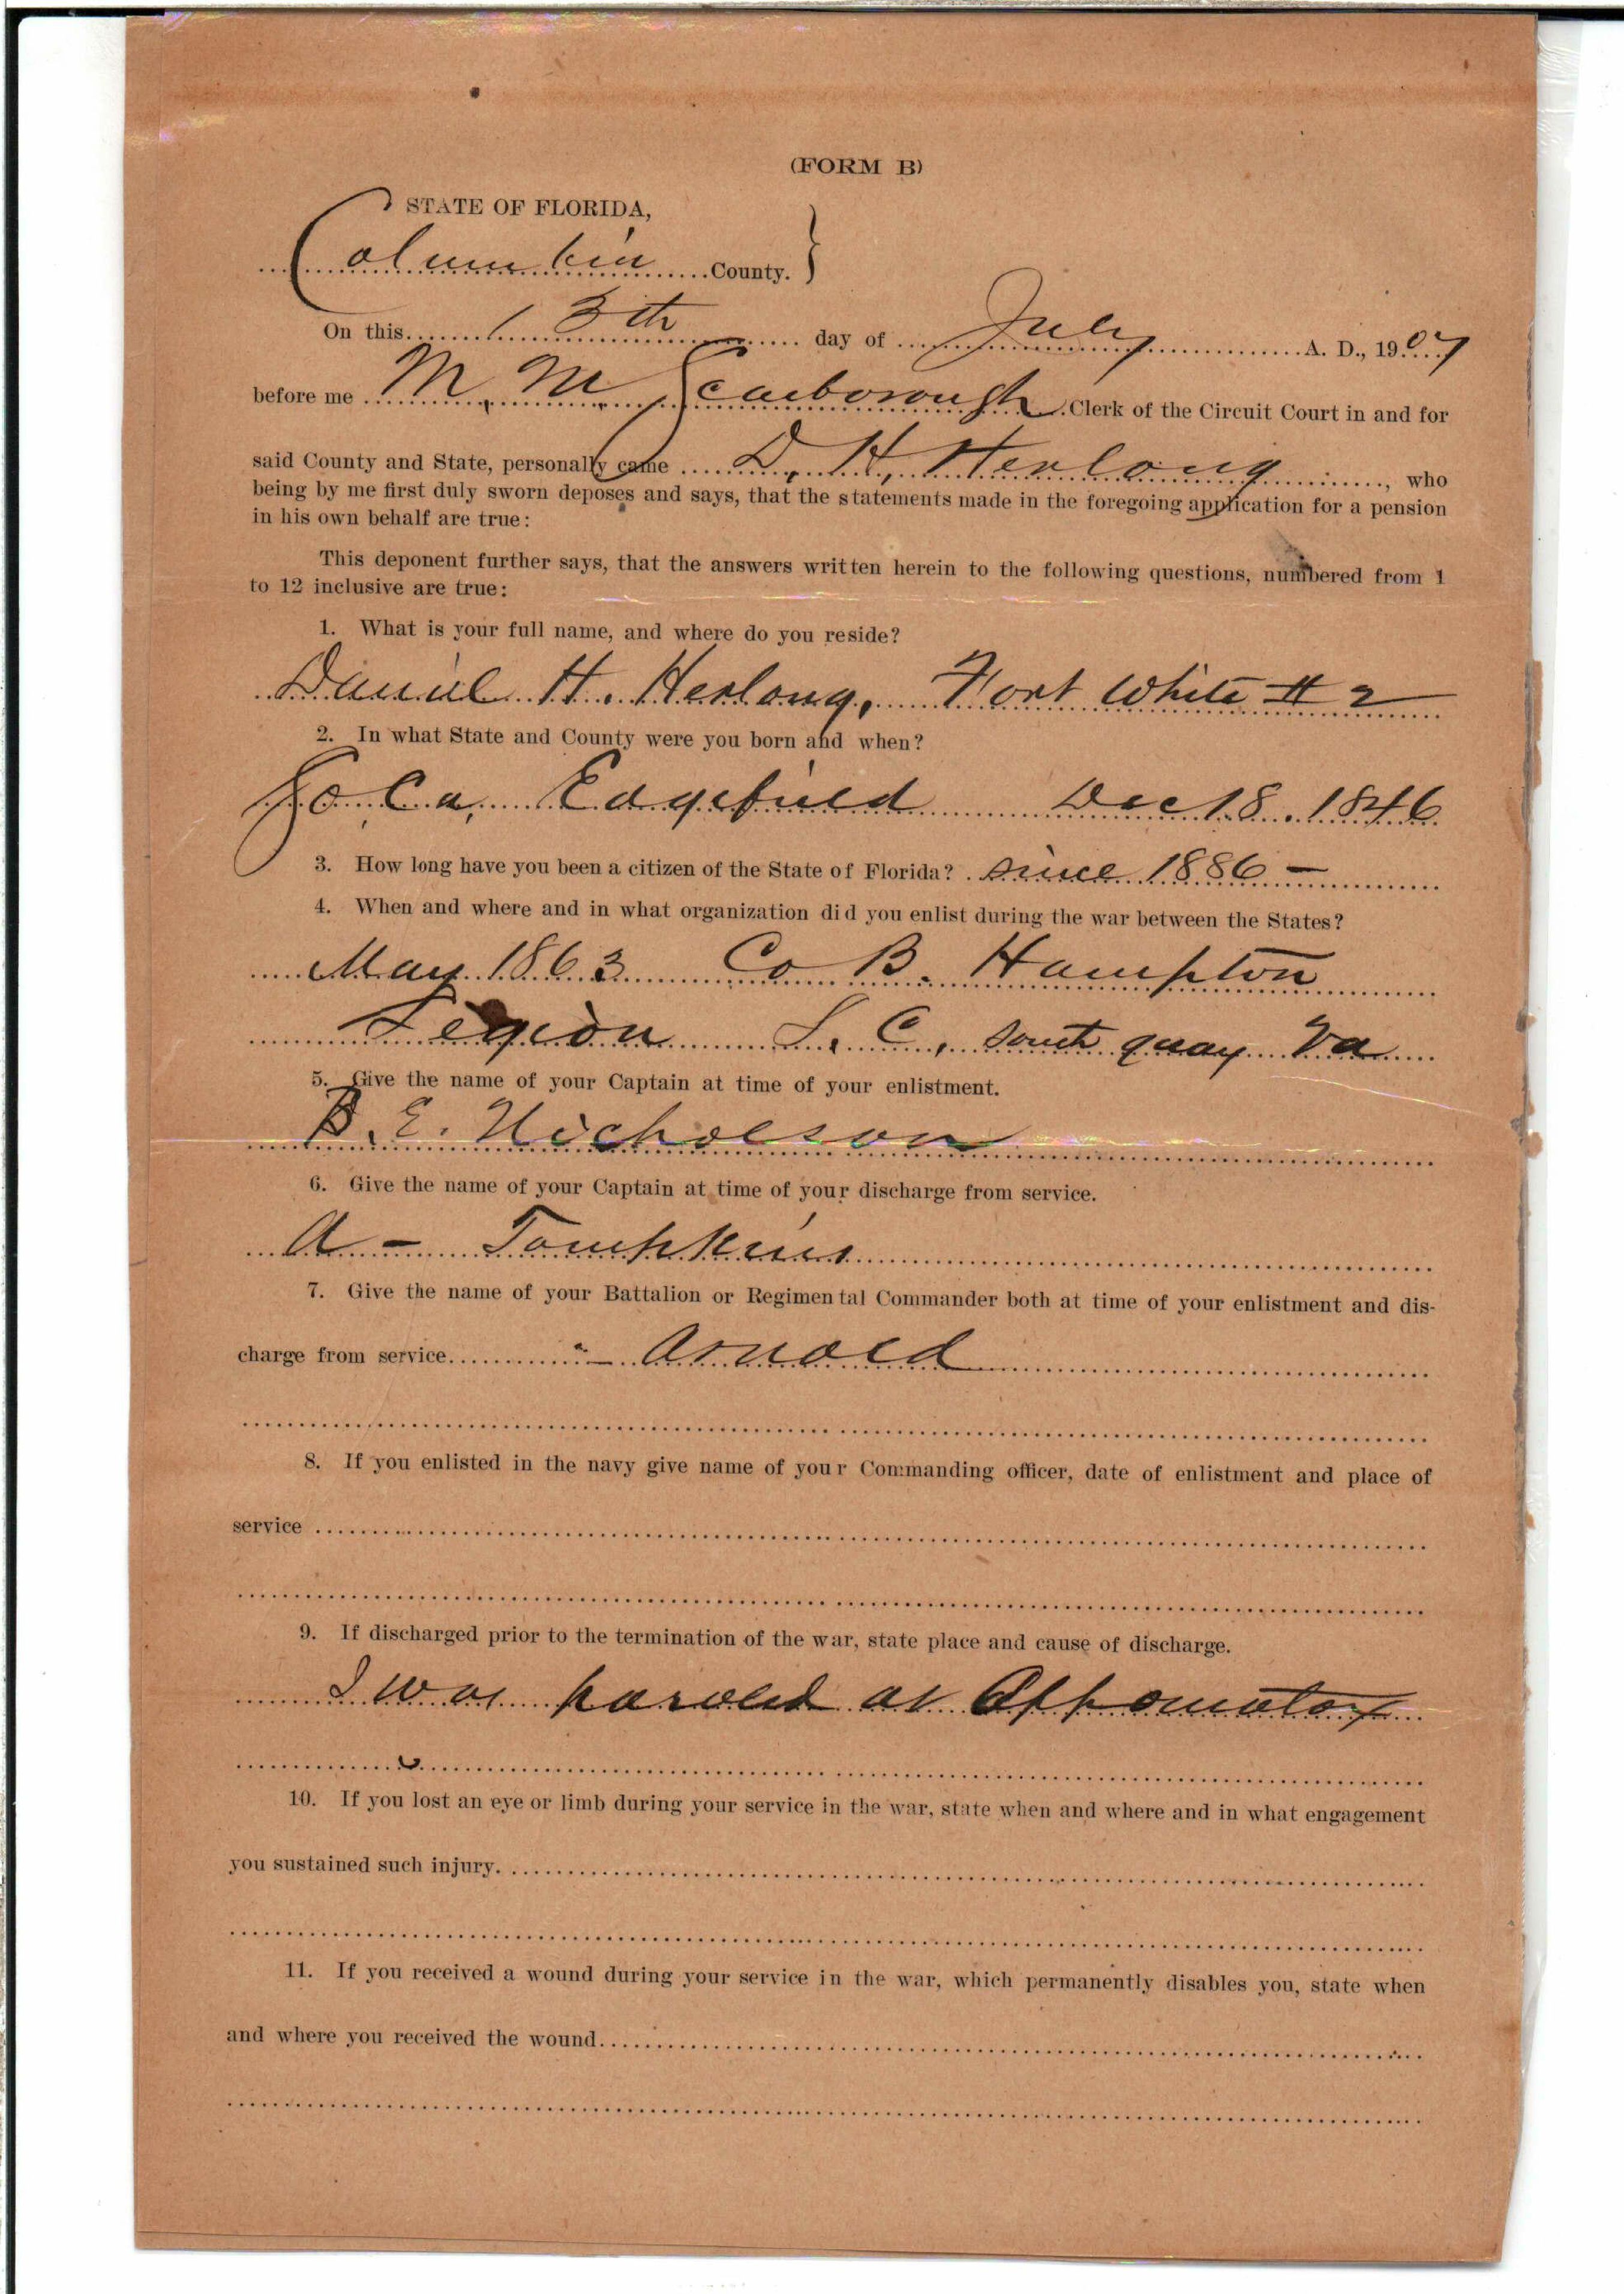 (FORM B)
STATE OF FLORIDA,
Columbia County.
On this 13th day of July A. D., 1907
before me M. M. Scarborough Clerk of the Circuit Court in and for
said County and State, personally came D. H. Herlong, who
being by me first duly sworn deposes and says, that the statements made in the foregoing application for a pension
in his own behalf are true:
This deponent further says, that the answers written herein to the following questions, numbered from 1
to 12 inclusive are true:
1. What is your full name, and where do you reside?
Daniel H. Herlong, Fort White # 2
2. In what State and County were you born and when?
So. Ca, Edgefield Dec 18. 1846
3. How long have you been a citizen of the State of Florida? since 1886 —
4. When and where and in what organization did you enlist during the war between the States?
May 1863 Co B. Hampton
Legion S. C, South quay Va
5. Give the name of your Captain at time of your enlistment.
B. E. Nicholson
6. Give the name of your Captain at time of your discharge from service.
A - Tompkins
7. Give the name of your Battalion or Regimental Commander both at time of your enlistment and dis-
charge from service. - Arnold
8. If you enlisted in the navy give name of your Commanding officer, date of enlistment and place of
service
9. If discharged prior to the termination of the war, state place and cause of discharge.
I was paroled at Appomatox
10. If you lost an eye or limb during your service in the war, state when and where and in what engagement
you sustained such injury.
11. If you received a wound during your service in the war, which permanently disables you, state when
and where you received the wound.